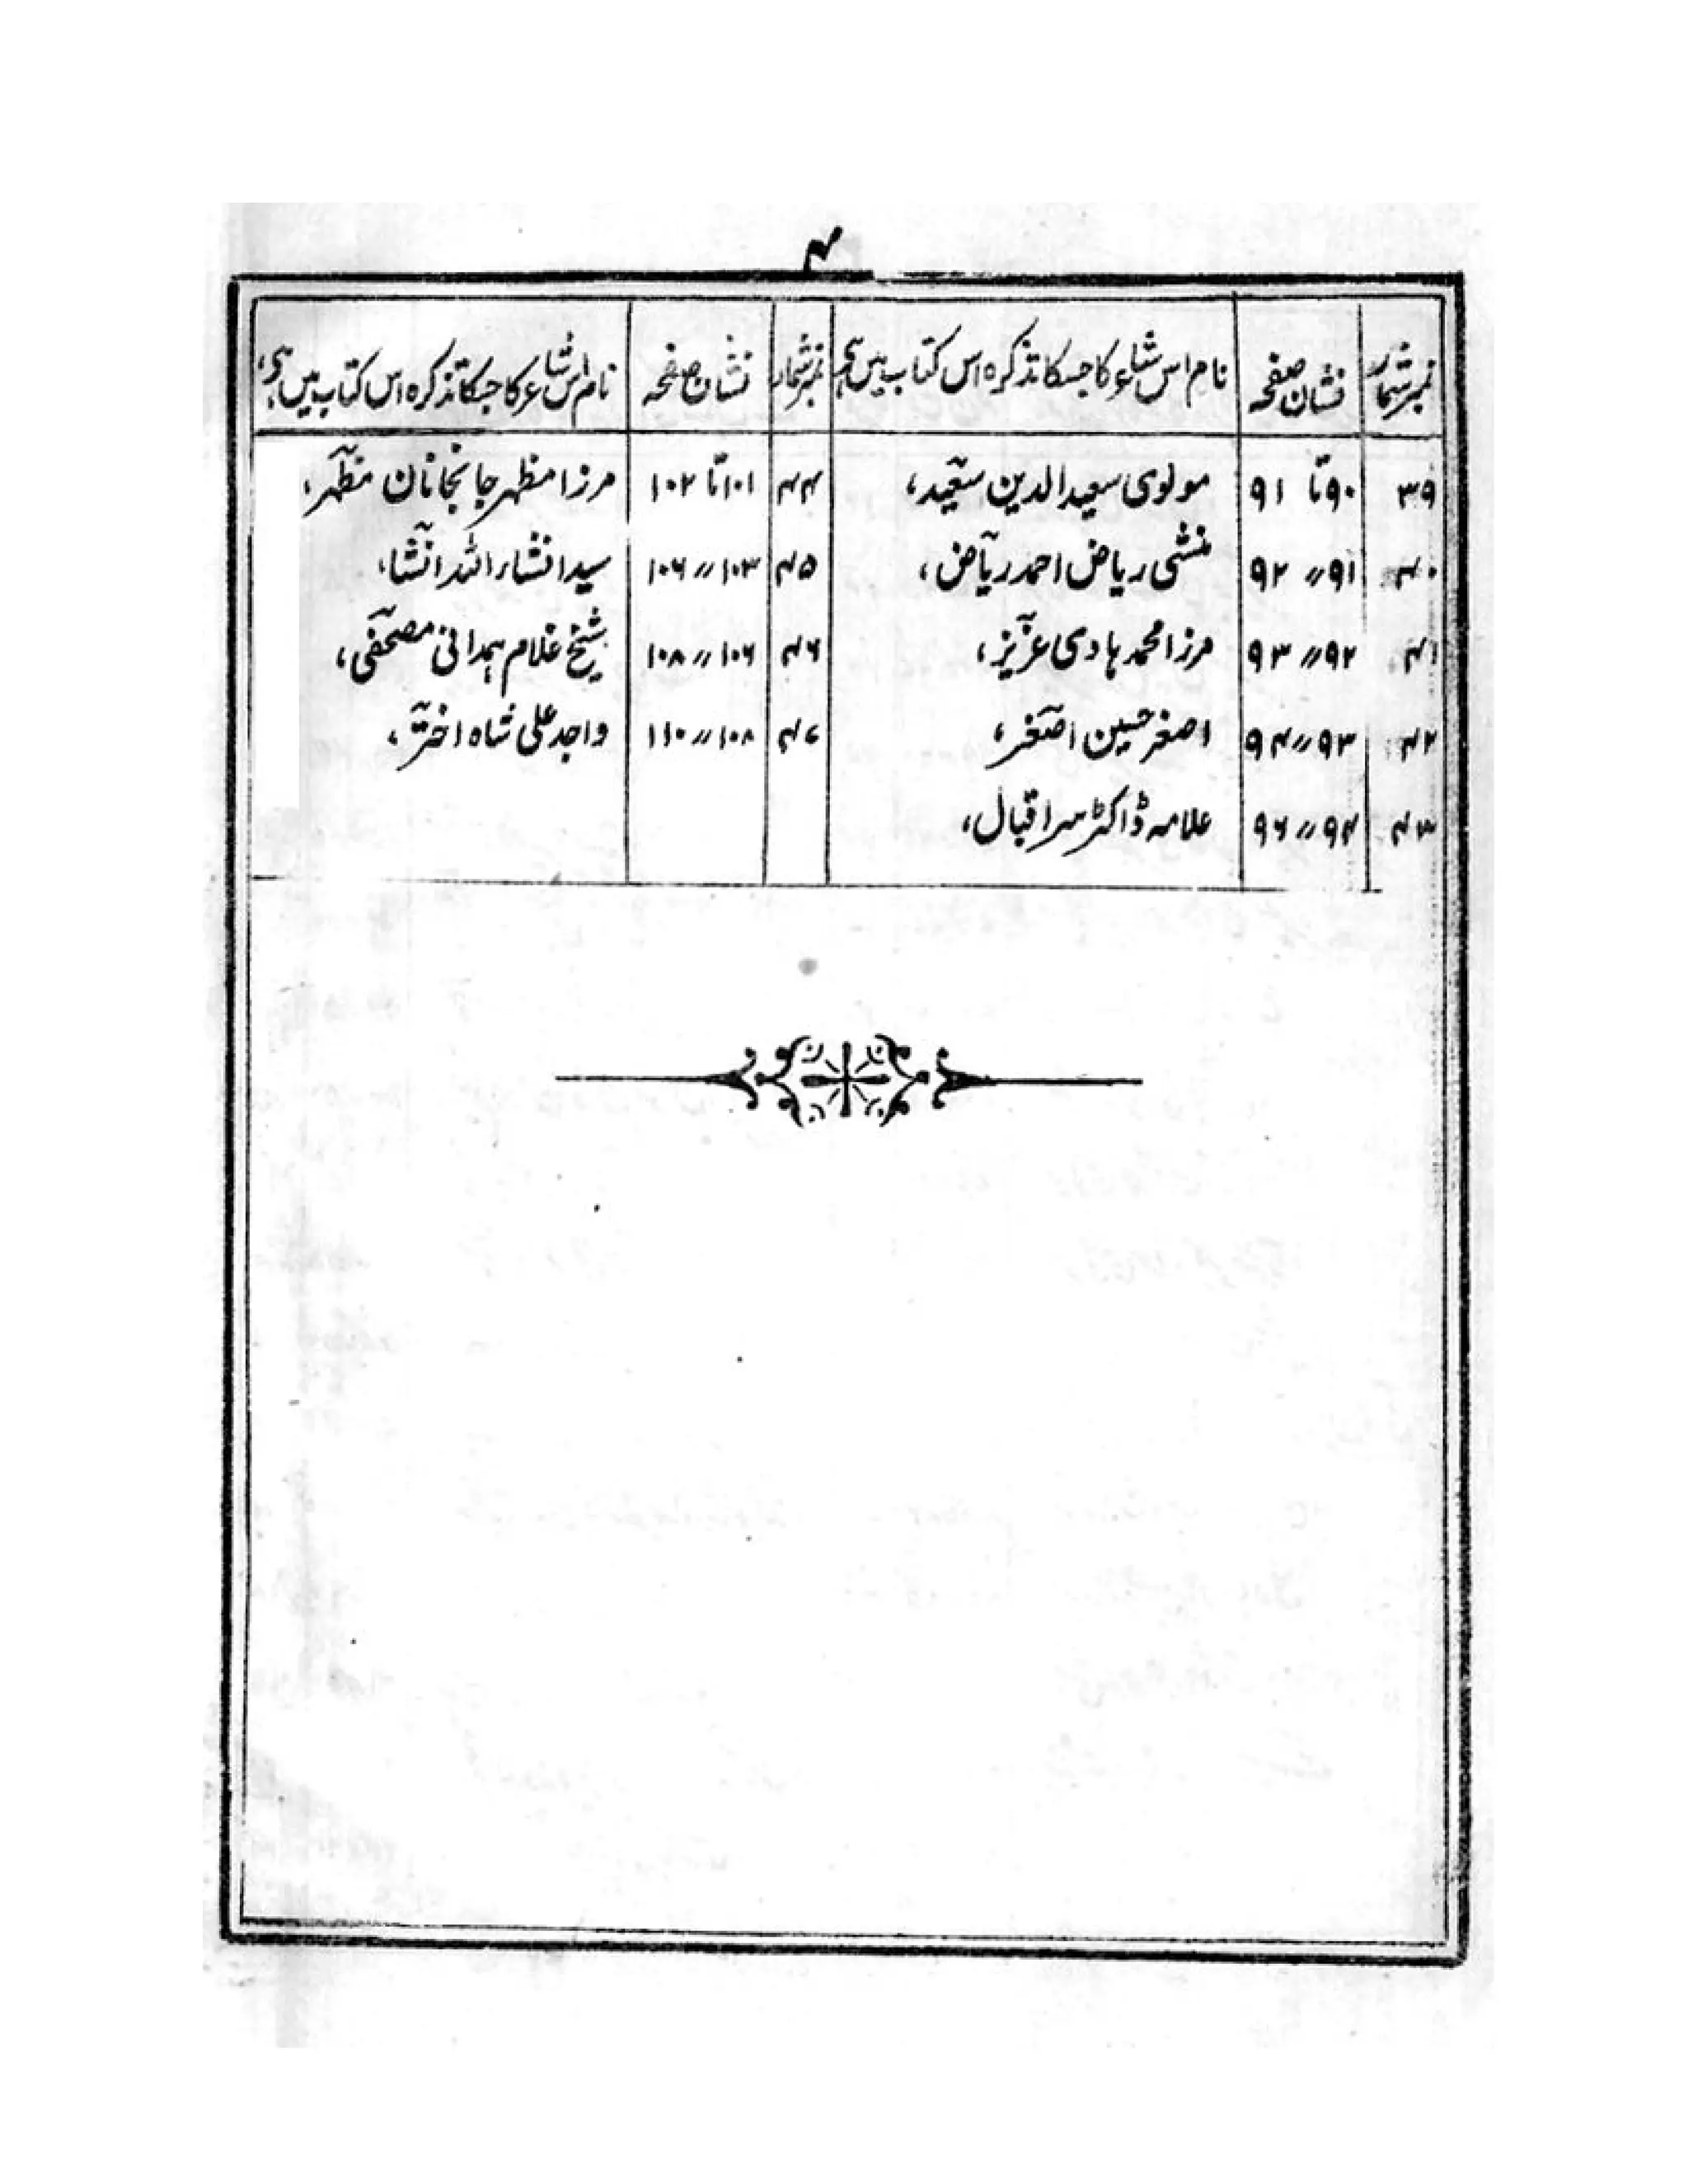 ۴
نمبر شمار نشان صفحہ نام اس شاعر کا جسکا تذکرہ اس کتاب میں ہے، نمبر شمار نشان صفحہ نام اس شاعر کا جسکا تذکرہ اس کتاب میں ہے،
۳۹ ۹۰ تا ۹۱ مولوی سعید الدین سعید، ۴۴ ۱۰۱ تا ۱۰۲ مرزا مظہر جانجانان مظہر،
۴۰ ۹۱ ״ ۹۲ منشی ریاض احمد ریاض، ۴۵ ۱۰۳ ״ ۱۰۶ سید انشاء اللہ انشا،
۴۱ ۹۲ ״ ۹۳ مرزا محمد ہادی عزیز، ۴۶ ۱۰۶ ״ ۱۰۸ شیخ غلام ہمدانی مصحفی،
۴۲ ۹۳ ״ ۹۴ اصغر حسین اصغر، ۴۷ ۱۰۸ ״ ۱۱۰ واجد علی شاہ اختر،
۴۳ ۹۴ ״ ۹۶ علامہ ڈاکٹر سر اقبال،